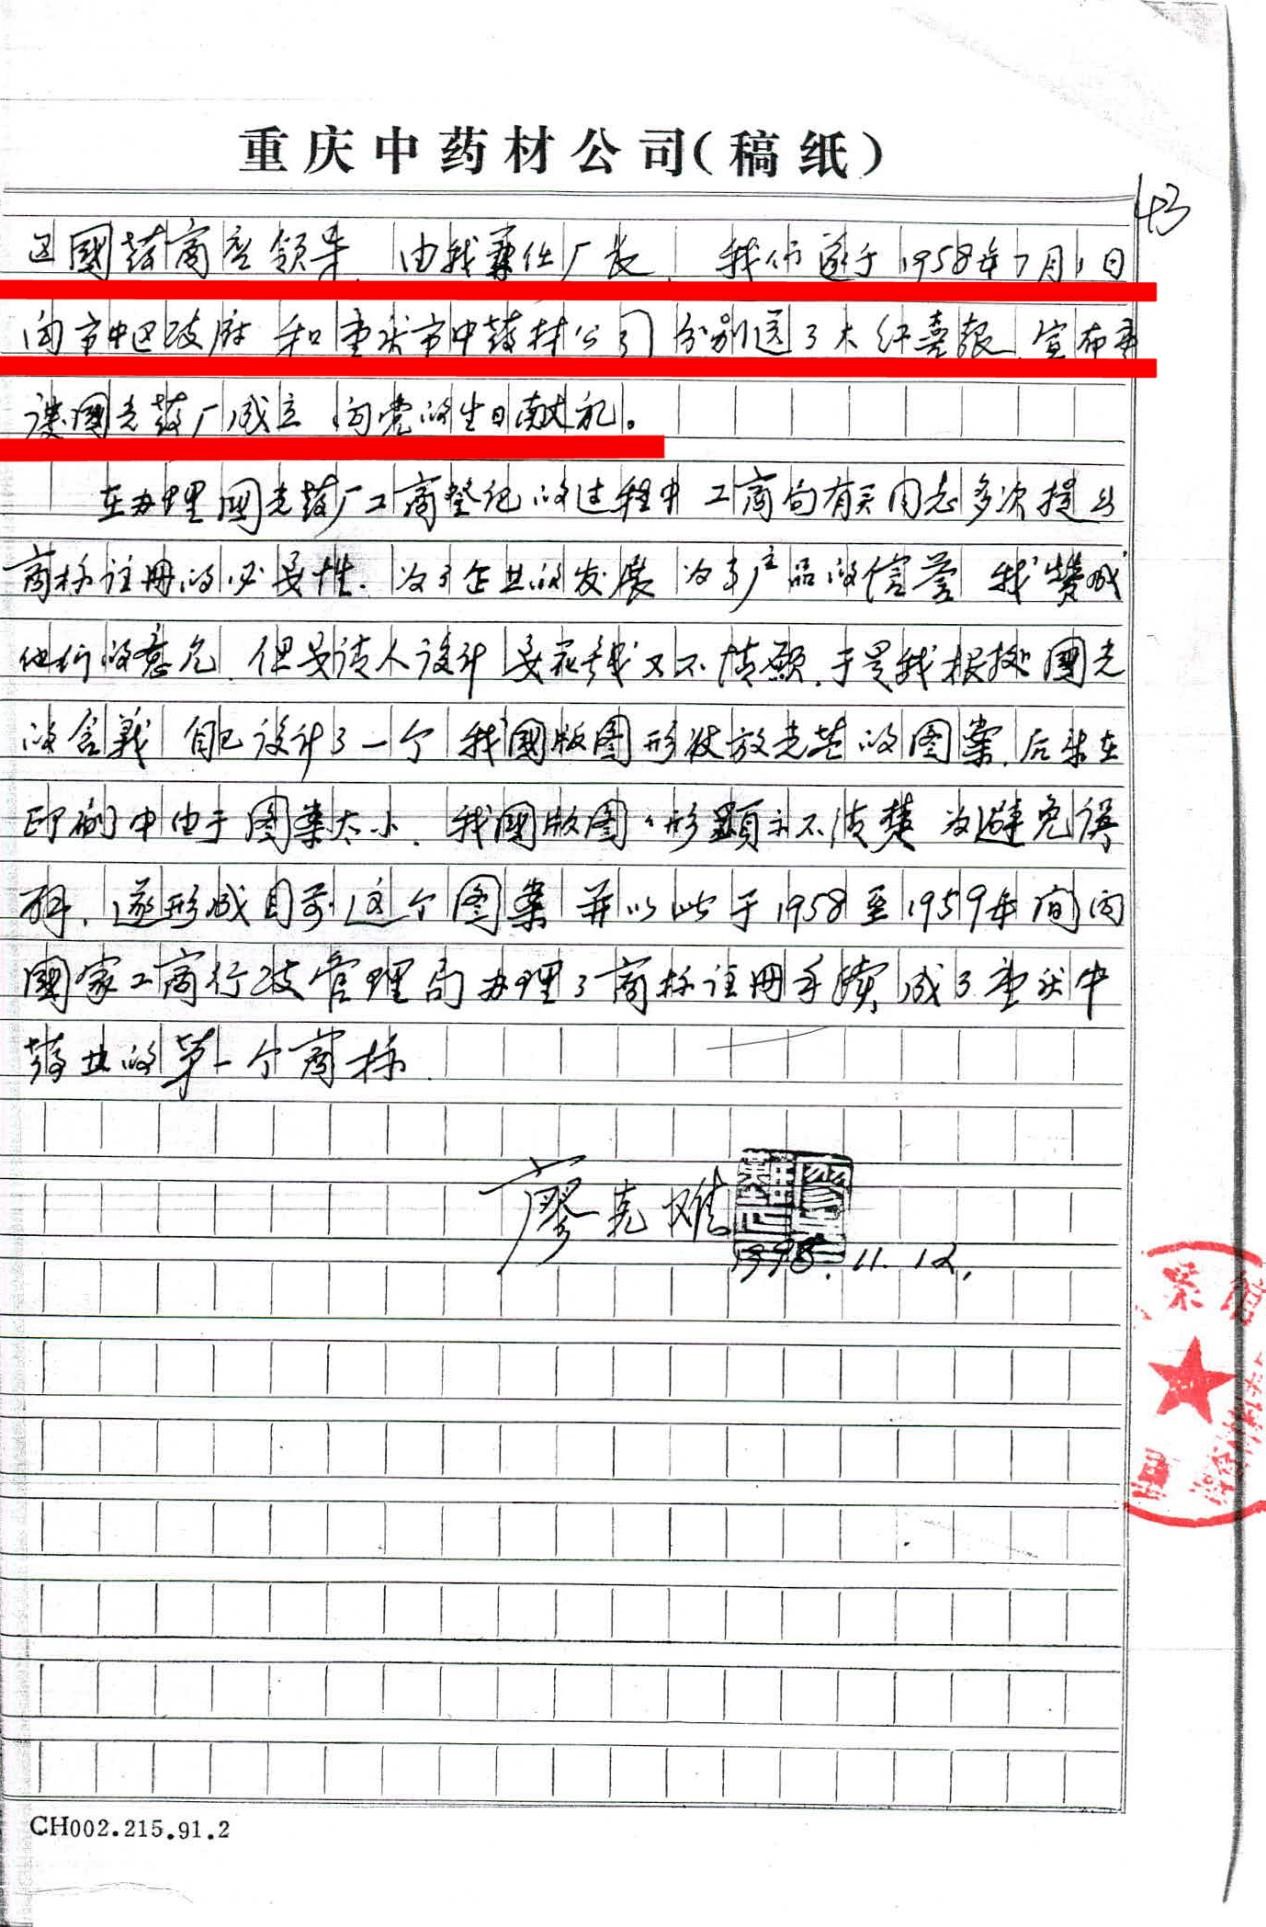 重庆中药材公司(稿纸)
43
区國药商座领导,由我兼任厂长,我们遂于1958年7月1日
向市中区政府和重庆市中药材公司分别送了大红喜报,宣布重
庆國光药厂成立,向党的生日献礼。
在办理國光药厂工商登记的过程中工商局有关同志多次提出
商标注册的必要性.为了企业的发展为了产品的信誉我赞成
他们的意见,但要请人设计要花钱我又不情愿,于是我根据國光
的含義自己设计了一个我國版图形状放光芒的图案,后来在
印刷中由于图案太小,我國版图的形顯示不清楚为避免误
解,遂形成目前这个图案并以此于1958至1959年间向
國家工商行政管理局办理了商标注册手续,成了重庆中
药业的第一个商标.
廖克难
1998.11.12.
CH002.215.91.2